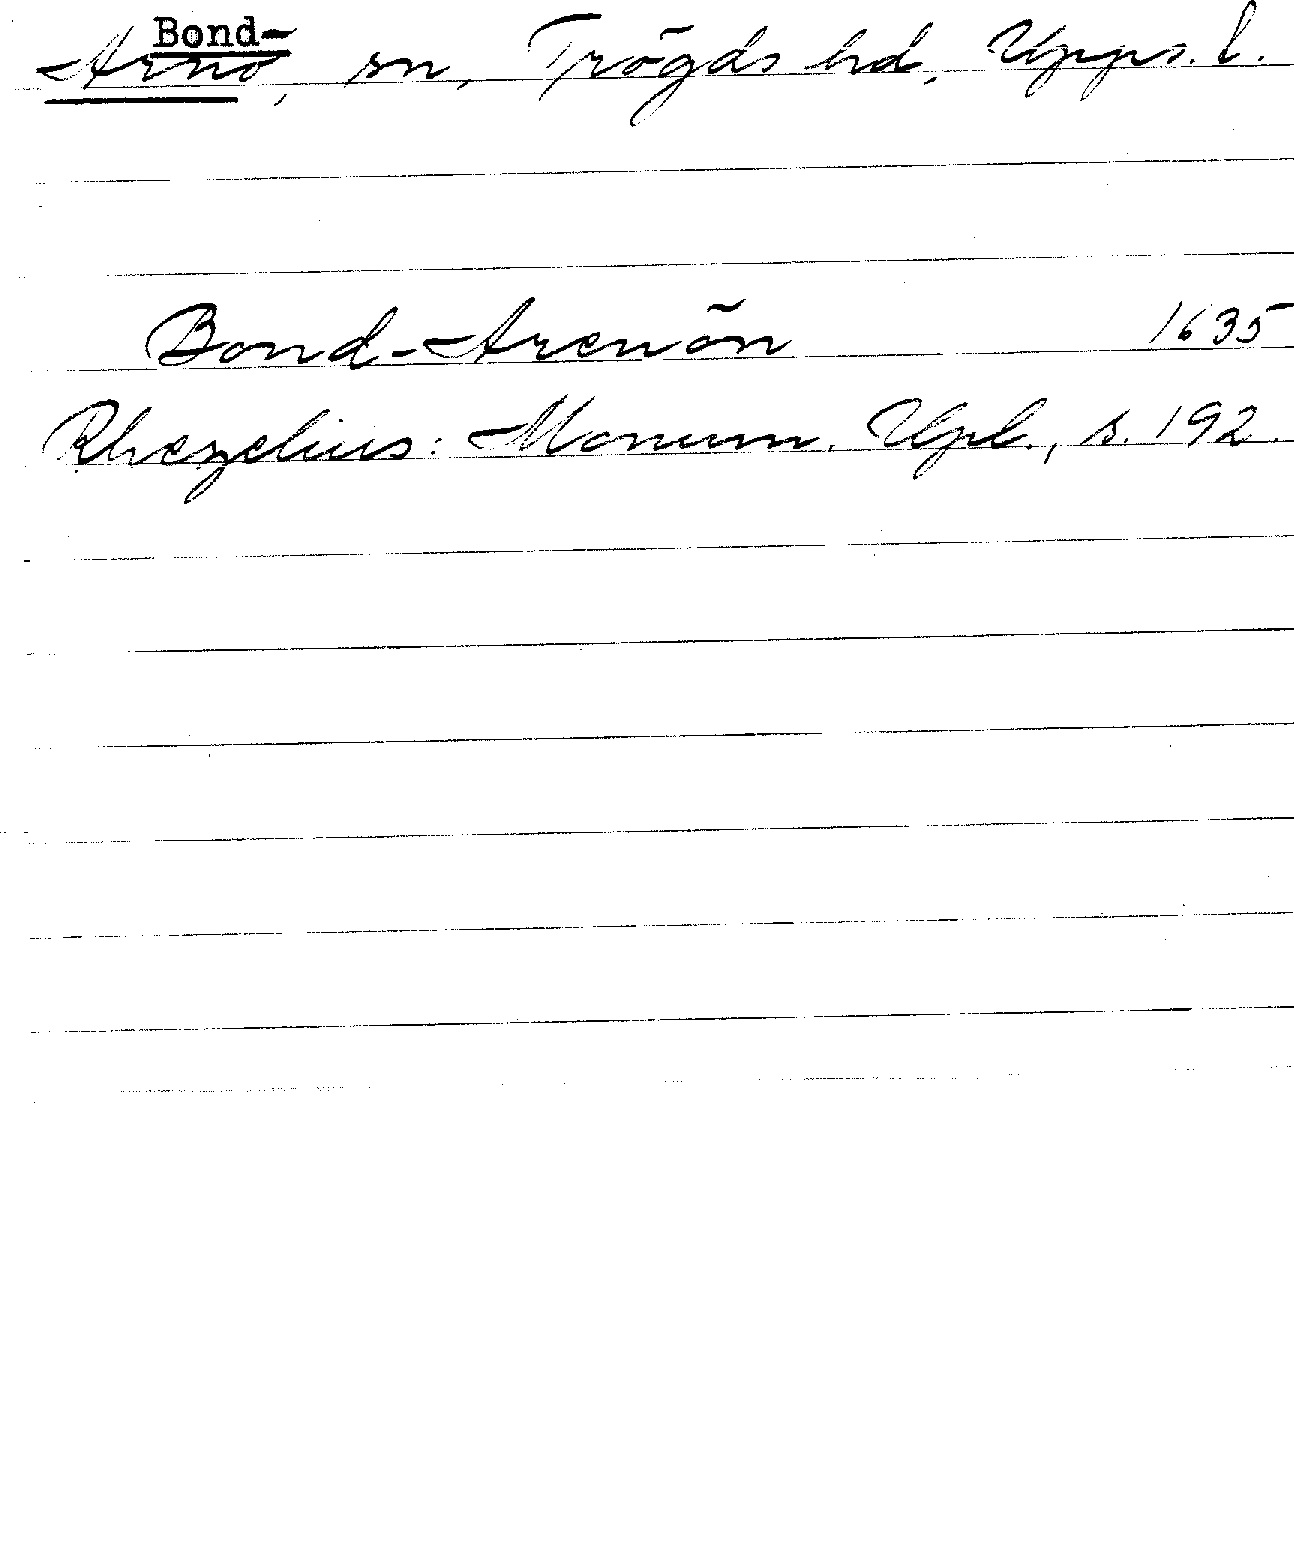 Bond-
Arnö, sn, Trögds hd, Upps. l.
Bond-Arenön 1635
Rhezelius: Monum. Upl., s. 192.